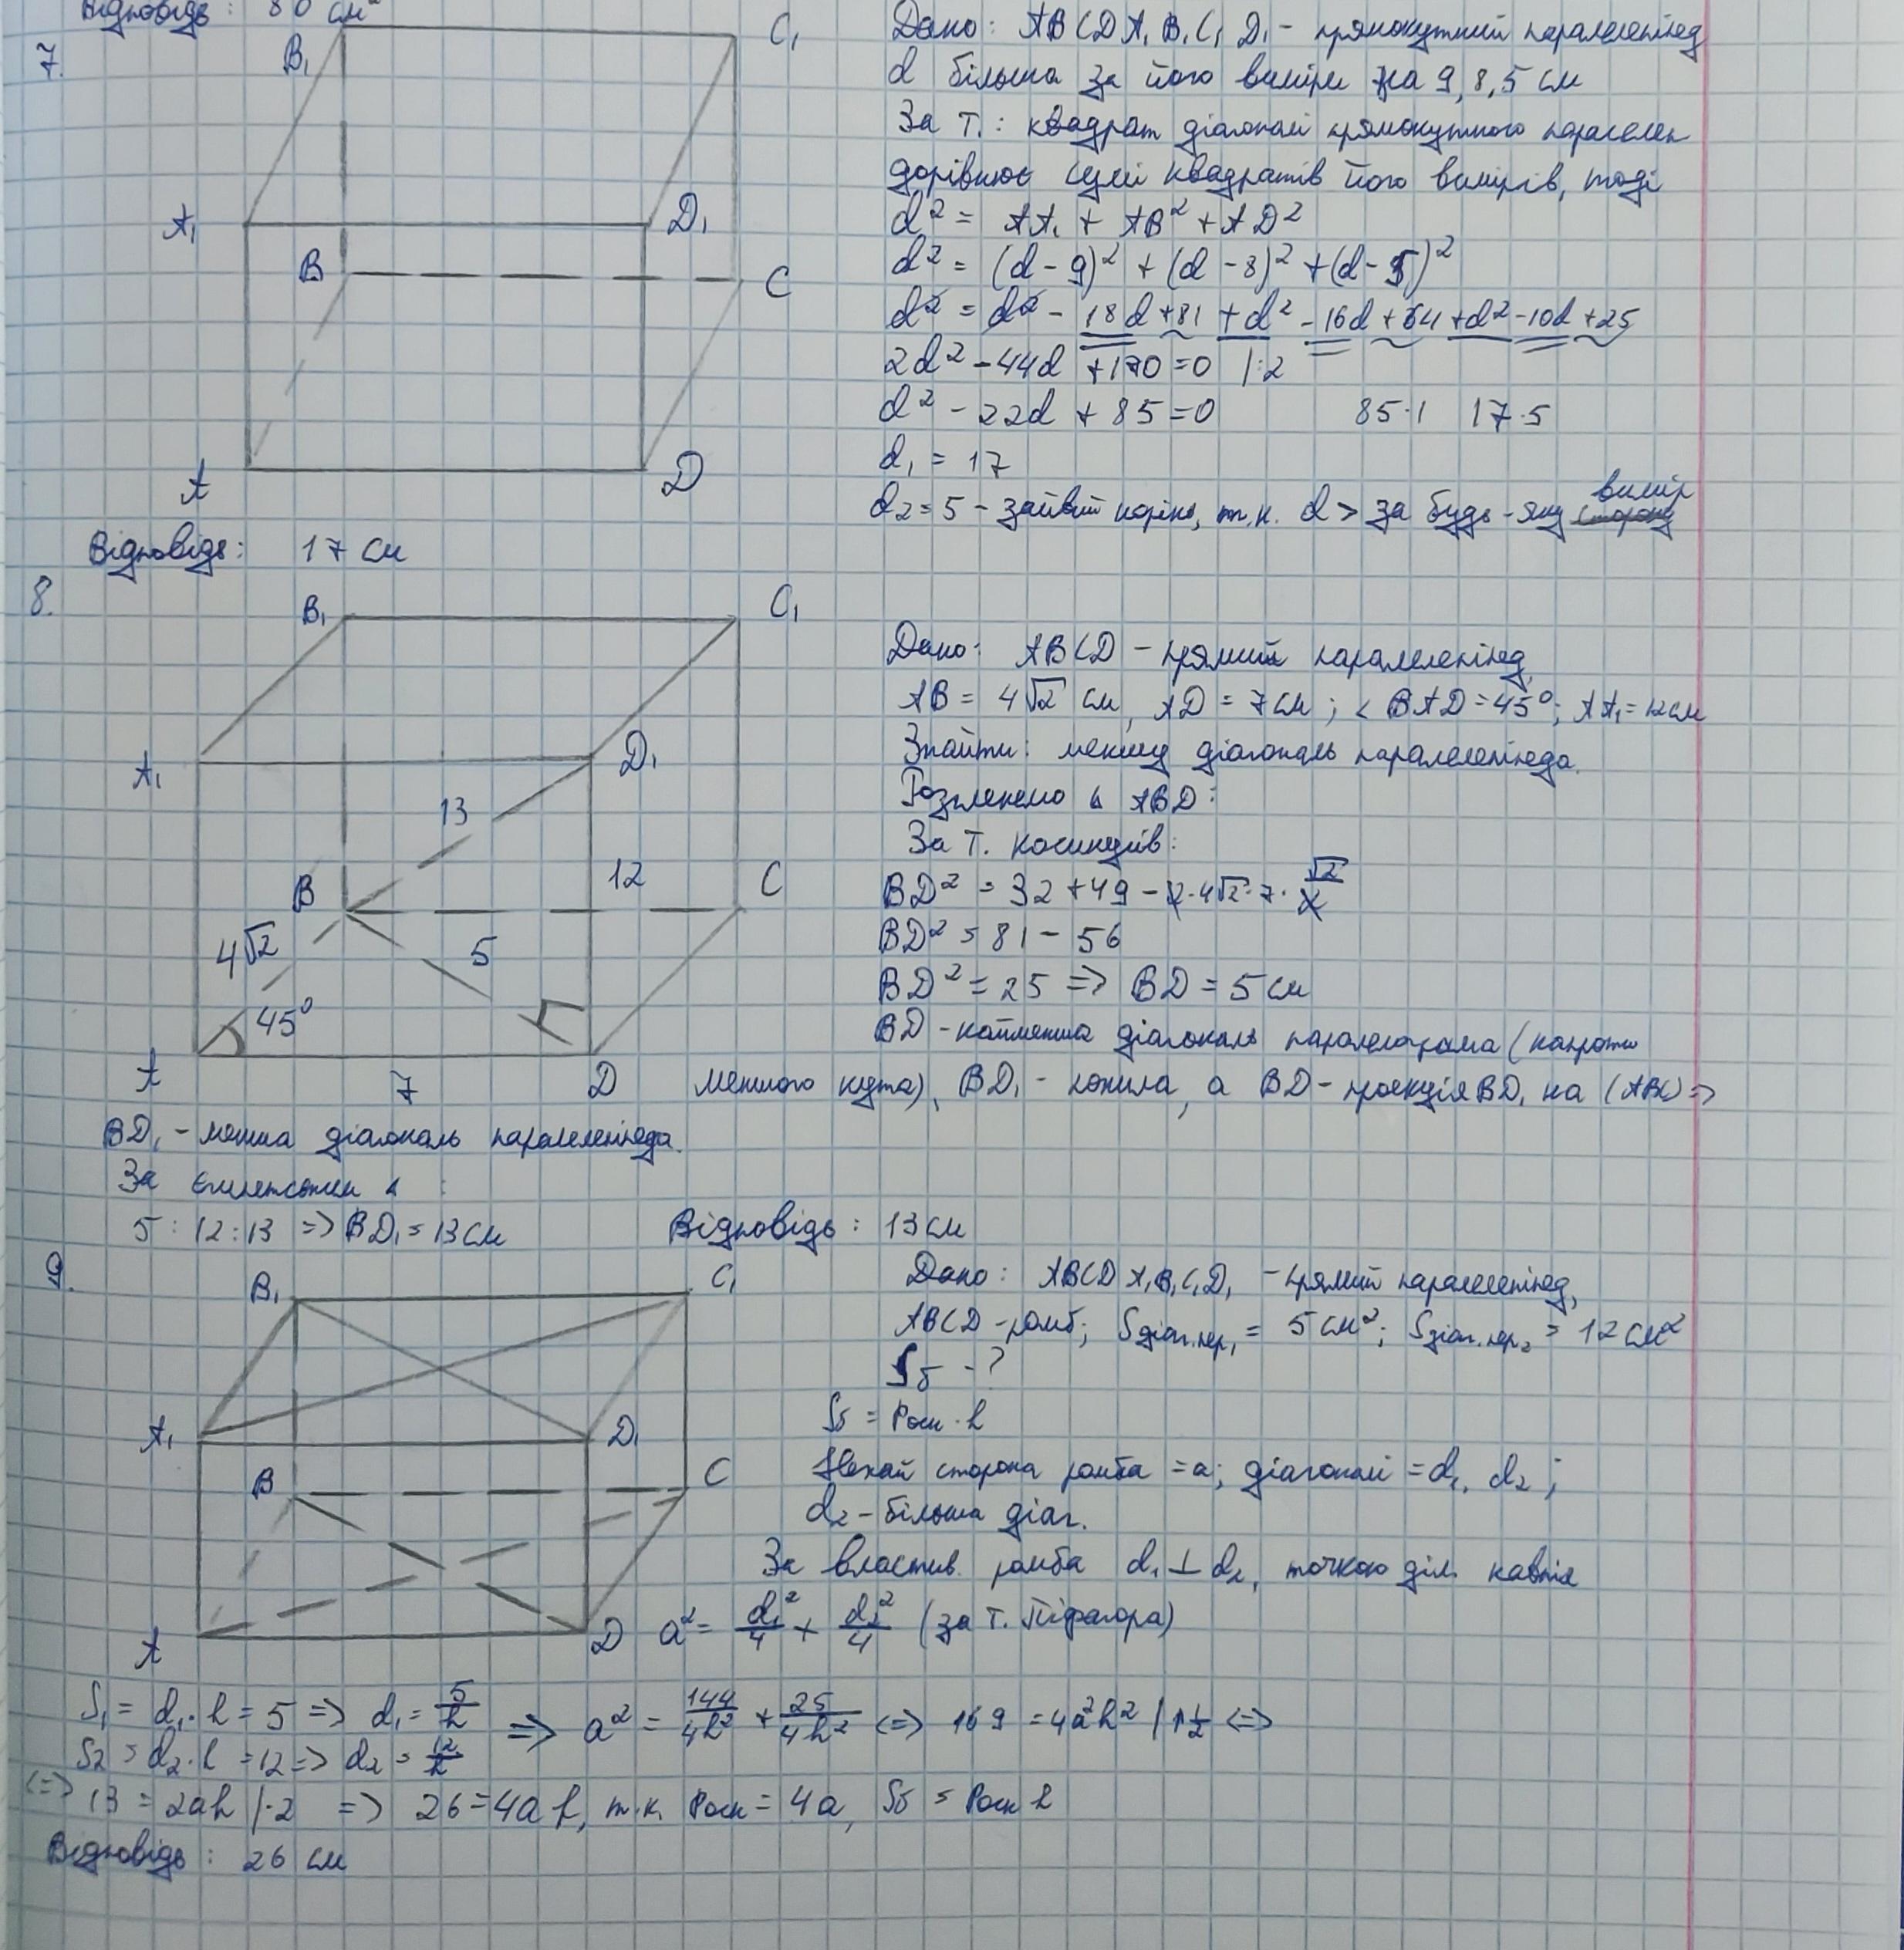 Відповідь: 80 см²
7.
B₁
C₁
A₁
D₁
B
C
A
D
Дано: ABCDA₁B₁C₁D₁ - прямокутний паралелепіпед
d більша за його виміри на 9, 8, 5 см
За Т.: квадрат діагоналі прямокутного паралелеп
дорівнює сумі квадратів його вимірів, тоді
d² = AA₁ + AB² + AD²
d² = (d - 9)² + (d - 8)² + (d - 5)²
d² = d² - 18d + 81 + d² - 16d + 64 + d² - 10d + 25
2d² - 44d + 170 = 0 |:2
d² - 22d + 85 = 0 85·1 17·5
d₁ = 17
d₂ = 5 - зайвий корінь, т.к. d > за будь-яку вимір
Відповідь: 17 см
8.
B₁
C₁
A₁
D₁
13
12
B
C
4√2
5
45°
A
7
D
Дано: ABCD - прямий паралелепіпед,
AB = 4√2 см, AD = 7 см; < BAD = 45°; AA₁ = 12 см
Знайти: меншу діагональ паралелепіпеда.
Розглянемо △ ABD:
За Т. косинусів:
BD² = 32 + 49 - 2·4√2·7·√2/2
BD² = 81 - 56
BD² = 25 => BD = 5 см
BD - найменша діагональ паралелограма (напроти
меншого кута), BD₁ - похила, а BD - проекція BD₁ на (ABC) =>
BD₁ - менша діагональ паралелепіпеда.
За єгипетським △ :
5 : 12 : 13 => BD₁ = 13 см Відповідь: 13 см
9.
B₁
C₁
A₁
D₁
B
C
A
D
Дано: ABCDA₁B₁C₁D₁ - прямий паралелепіпед,
ABCD - ромб; Sдіаг.пер₁ = 5 см²; Sдіаг.пер₂ = 12 см²
Sб - ?
Sб = Pосн · h
Нехай сторона ромба = a; діагоналі = d₁, d₂;
d₂ - більша діаг.
За властив. ромба d₁ ⊥ d₂, точкою діл. навпіл
a² = d₁²/4 + d₂²/4 (за Т. Піфагора)
S₁ = d₁·h = 5 => d₁ = 5/h => a² = 144/4h² + 25/4h² <=> 169 = 4a²h² |↑1/2 <=>
S₂ = d₂·h = 12 => d₂ = 12/h
<=> 13 = 2ah |·2 => 26 = 4ah, т.к. Pосн = 4a, Sб = Pосн h
Відповідь: 26 см